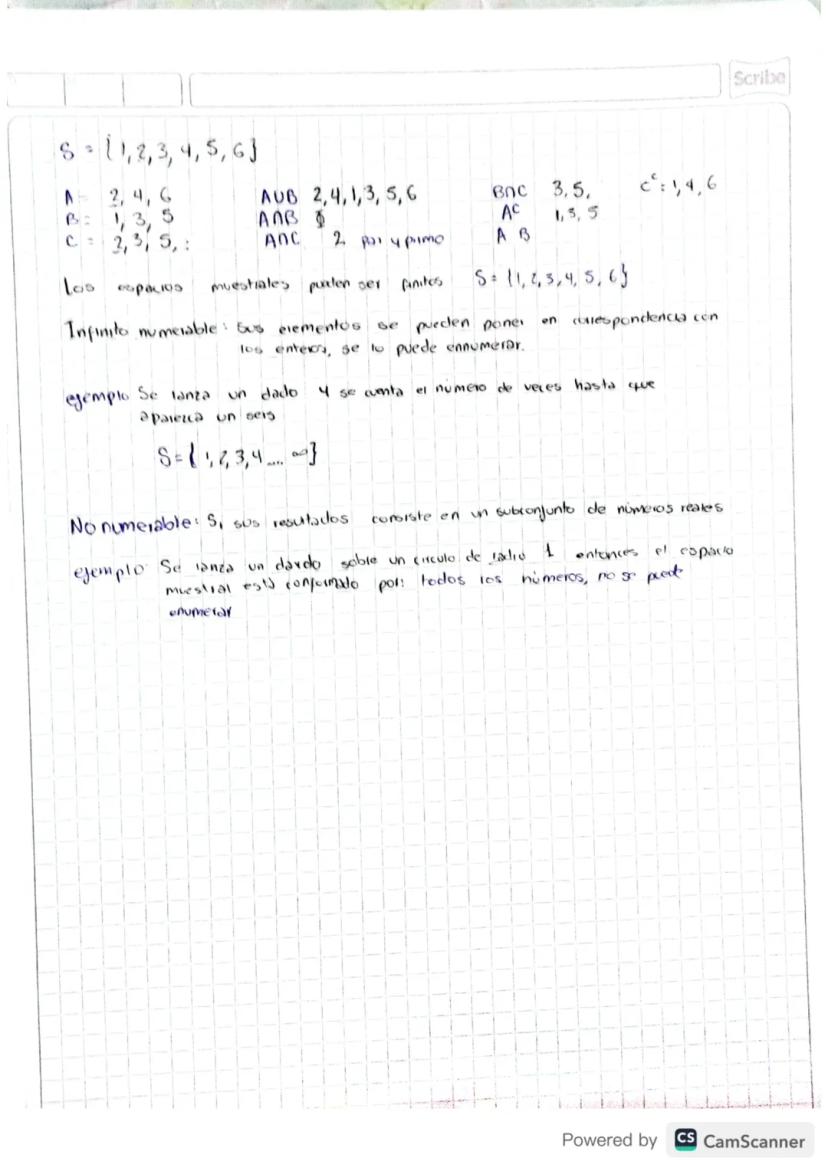 Scribe
S = {1,2,3,4,5,6}
A = 2, 4, 6   AUB 2,4,1,3,5,6   B∩C 3,5,   Cᶜ: 1,4,6
B = 1, 3, 5   A∩B ∅   Aᶜ 1,3,5
C = 2, 3, 5, :   A∩C 2 par y primo   A B
Los espacios muestrales pueden ser finitos S = {1,2,3,4,5,6}
Infinito numerable: Sus elementos se pueden poner en correspondencia con
los enteros, se lo puede ennumerar.
ejemplo Se lanza un dado y se cuenta el número de veces hasta que
aparezca un seis
S = {1,2,3,4.... ∞}
No numerable: Si sus resultados consiste en un subconjunto de números reales
ejemplo Se lanza un dardo sobre un circulo de radio 1 entonces el espacio
muestral está conformado por: todos los números, no se puede
enumerar
Powered by CS CamScanner